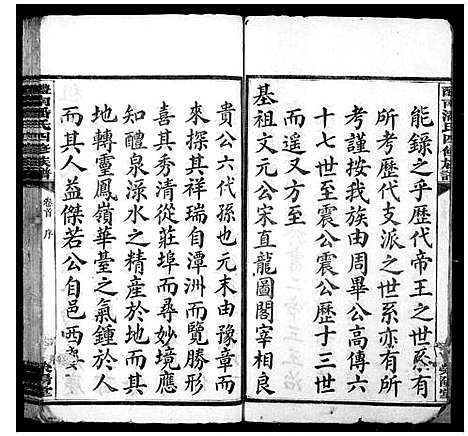 醴南潘氏四修族譜
能錄之乎歷代帝王之世系有
所考歷代支派之世系亦有所
考謹按我族由周畢公高傳六
十七世至震公震公歷十三世
而遥又方至
基祖文元公宋直龍圖閣宰相良
貴公六代孫也元末由豫章而
來探其祥瑞自潭洲而覽勝形
喜其秀清從莊埠而尋妙境應
知醴泉淥水之精產於地而其
地轉靈鳳嶺華臺之氣鍾於人
而其人益傑若公自邑西
醴南潘氏四修族譜
卷首 序
榮陽堂